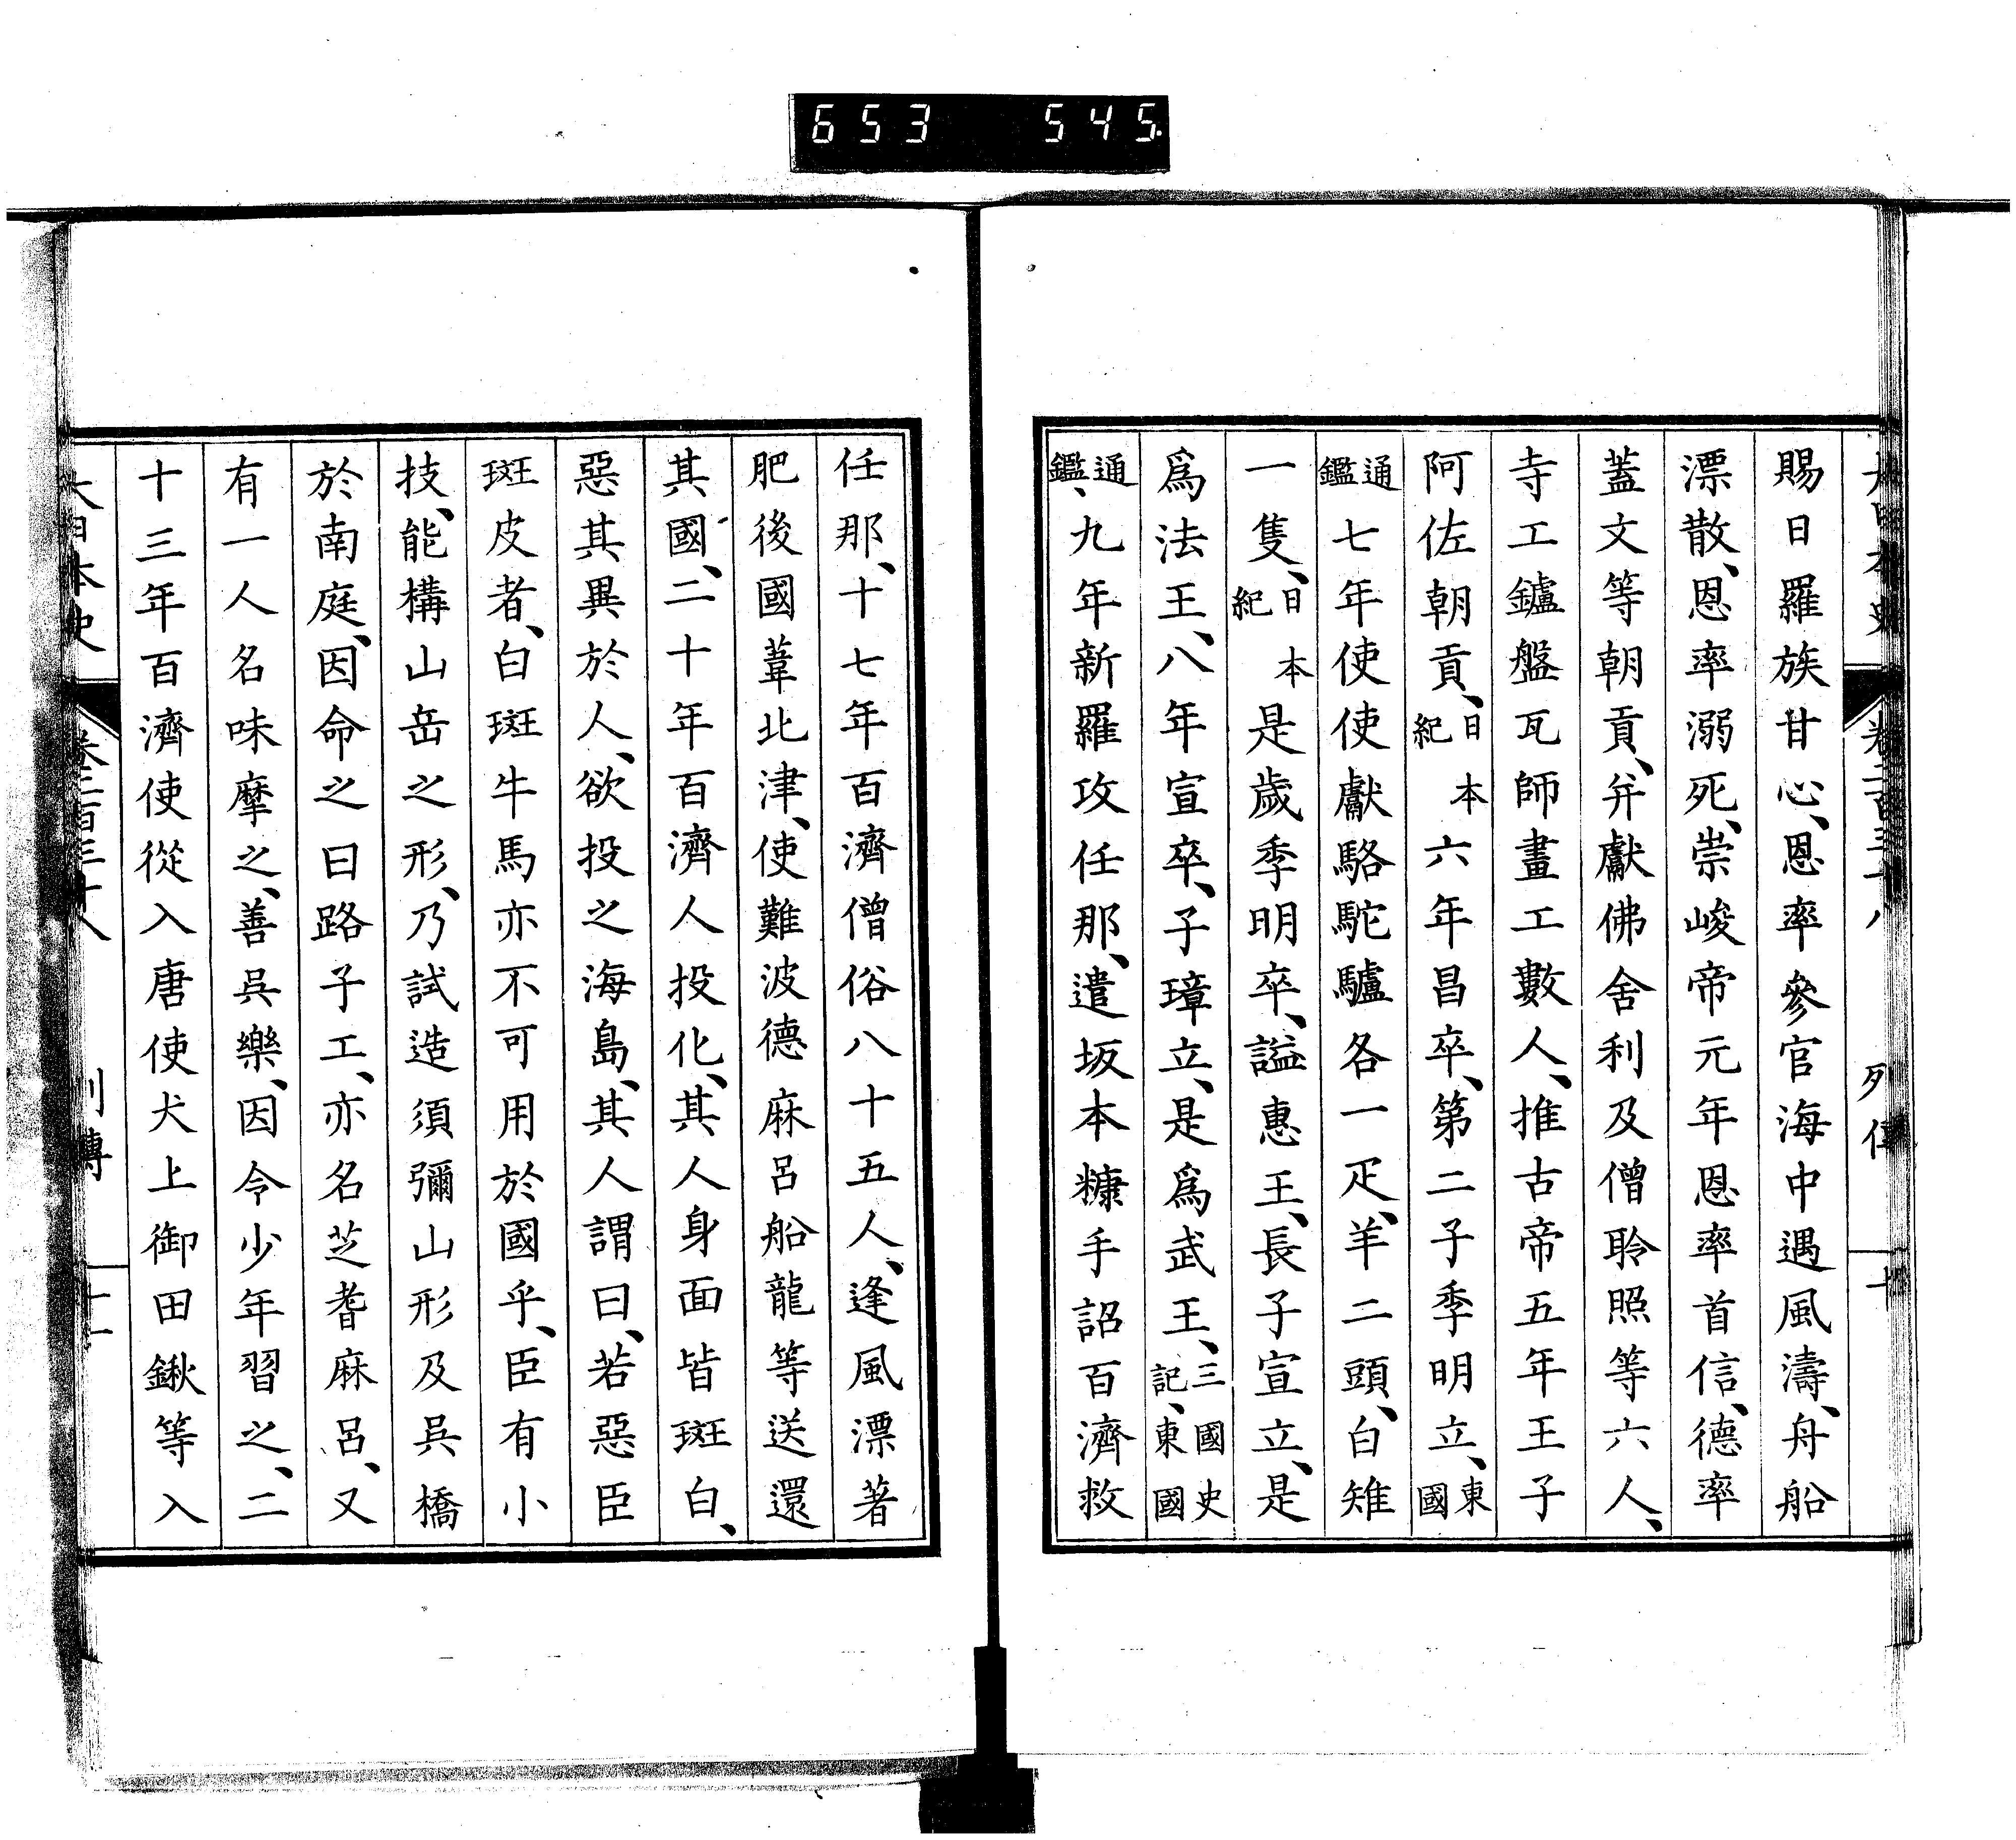 653 545.
大日本史 卷二百三十八 列傳 十
賜日羅族甘心、恩率參官海中遇風濤、舟船
漂散、恩率溺死、崇峻帝元年恩率首信、德率
蓋文等朝貢、幷獻佛舍利及僧聆照等六人、
寺工鑪盤瓦師畫工數人、推古帝五年王子
阿佐朝貢、日本紀六年昌卒、第二子季明立、東國
通鑑七年使使獻駱駝驢各一疋、羊二頭、白雉
一隻、日本紀是歲季明卒、謚惠王、長子宣立、是
爲法王、八年宣卒、子璋立、是爲武王、三國史記、東國
通鑑、九年新羅攻任那、遣坂本糠手詔百濟救
任那、十七年百濟僧俗八十五人、逢風漂著
肥後國葦北津、使難波德麻呂船龍等送還
其國、二十年百濟人投化、其人身面皆斑白、
惡其異於人、欲投之海島、其人謂曰、若惡臣
斑皮者、白斑牛馬亦不可用於國乎、臣有小
技、能構山岳之形、乃試造須彌山形及呉橋
於南庭、因命之曰路子工、亦名芝耆麻呂、又
有一人名味摩之、善呉樂、因令少年習之、二
十三年百濟使從入唐使犬上御田鍬等入
大日本史 卷二百三十八 列傳 十一